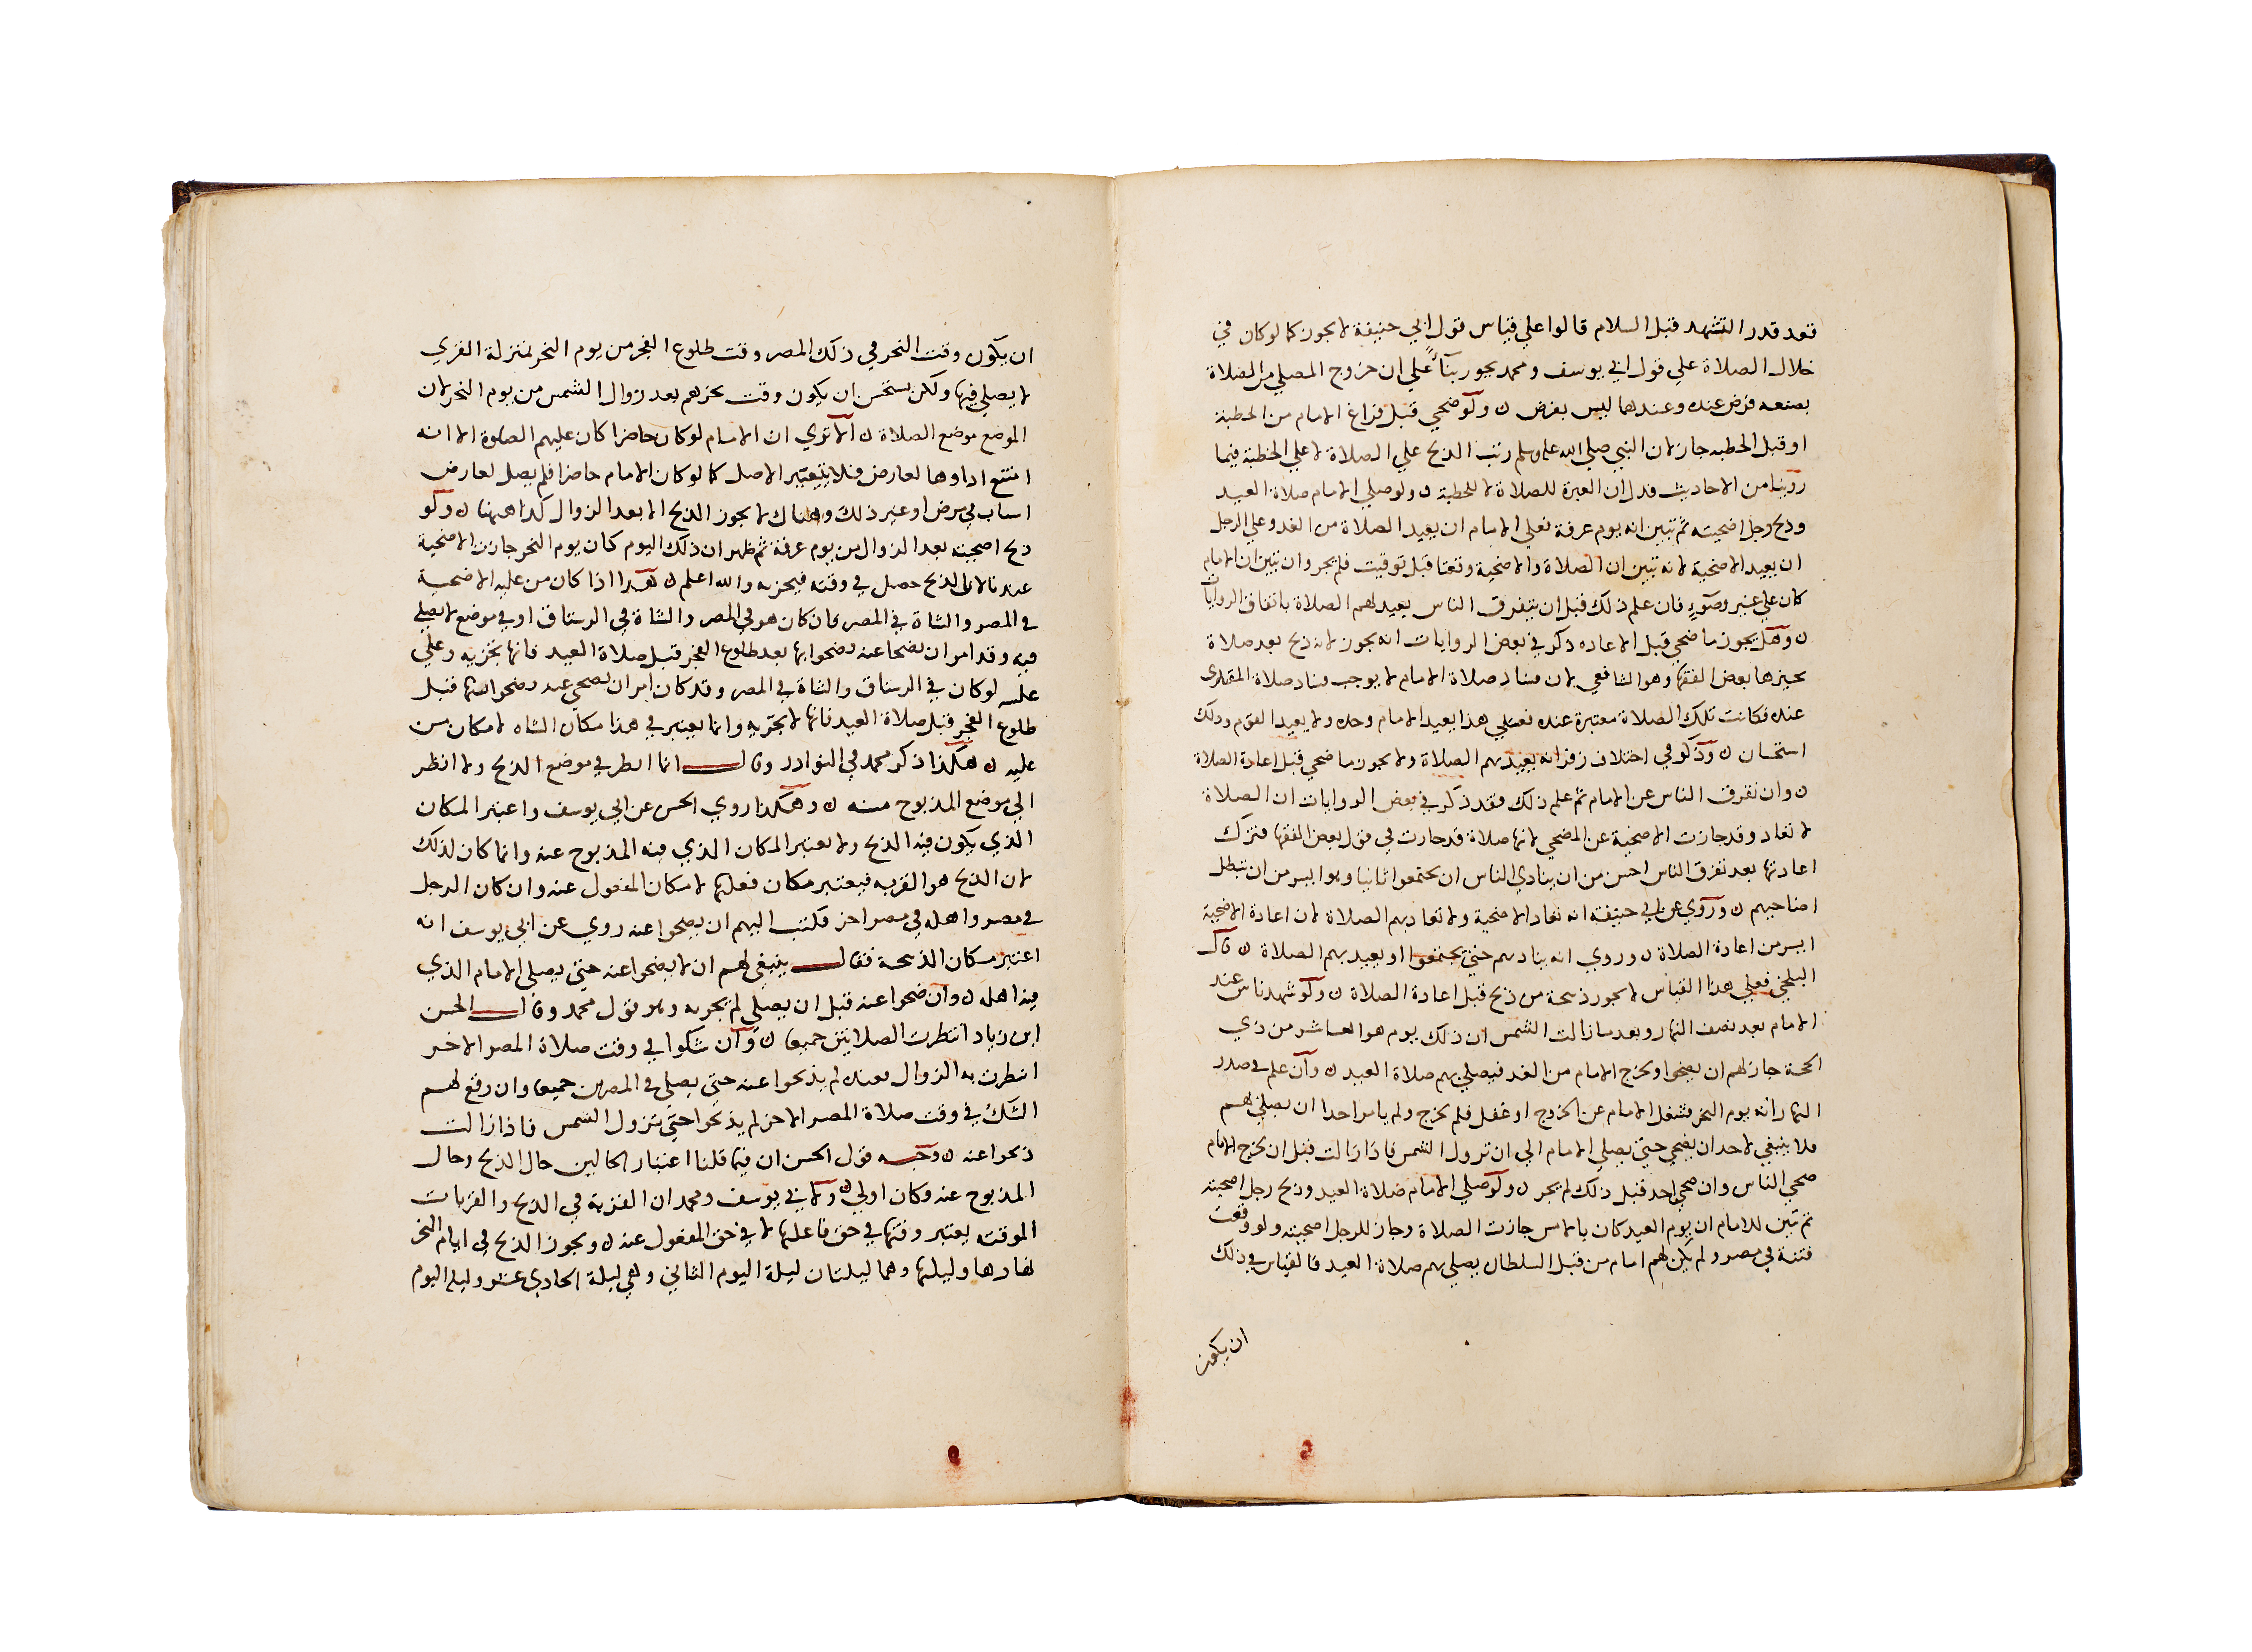 قعد قدر التشهد قبل السلام قالوا علي قياس قول ابي حنيفة لا يجوز كما لو كان في
خلال الصلاة علي قول ابي يوسف ومحمد يجوز بناءً علي ان خروج المصلي من الصلاة
بصنعه فرض عنده وعندهما ليس بفرض ن ولو ضحي قبل فراغ الامام من الخطبة
او قبل الخطبه جاز لان النبي صلي الله عليه وسلم رتب الذبح علي الصلاة لا علي الخطبة فيما
روينا من الاحاديث فدل ان العبرة للصلاة لا للخطبة ن ولو صلي الامام صلاة العيد
وذبح رجل اضحيته ثم تبين انه يوم عرفة فعلي الامام ان يعيد الصلاة من الغد وعلي الرجل
ان يعيد الاضحية لانه تبين ان الصلاة والاضحية وقعتا قبل توقيت فلم يجز وان تبين ان الامام
كان علي غير وضوءٍ فان علم ذلك قبل ان يتفرق الناس يعيد لهم الصلاة باتفاق الروايات
ن وهل يجوز ما ضحي قبل الاعاده ذكر في بعض الروايات انه يجوز لانه ذبح بعد صلاة
يجيزها بعض الفقها وهو الشافعي لان فساد صلاة الامام لا يوجب فساد صلاة المقتدى
عنده فكانت تلك الصلاة معتبرة عنده فعلي هذا يعيد الامام وحده ولا يعيد القوم وذلك
استحسان ن وذكر في اختلاف زفر انه يعيد بهم الصلاة ولا يجوز ما ضحي قبل اعادة الصلاة
ن وان تفرق الناس عن الامام ثم علم ذلك فقد ذكر في بعض الروايات ان الصلاة
لا تعاد وقد جازت الاضحية عن المضحي لانها صلاة قد جازت في قول بعض الفقها فترك
اعادتها بعد تفرق الناس احسن من ان ينادي الناس ان يجتمعوا ثانيا وهو ايسر من ان تبطل
اضاحيهم ن وروي عن ابي حنيفة انه تعاد الاضحية ولا تعاد بهم الصلاة لان اعادة الاضحية
ايسر من اعادة الصلاة ن وروي انه ينادبهم حتي يجتمعوا او يعيد بهم الصلاة ن قال
البلخي فعلي هذا القياس لا يجوز ذبيحة من ذبح قبل اعادة الصلاة ن ولو شهد ناس عند
الامام بعد نصف النهار وبعد ما زالت الشمس ان ذلك يوم هو العاشر من ذي
الحجة جاز لهم ان يضحوا ويخرج الامام من الغد فيصلي بهم صلاة العيد ن وان علم في صدر
النهار انه يوم النحر فشغل الامام عن الخروج او غفل فلم يخرج ولم يامر احدا ان يصلي بهم
فلا ينبغي لاحد ان يضحي حتي يصلي الامام الي ان تزول الشمس فاذا زالت قبل ان يخرج الامام
ضحي الناس وان ضحي احد قبل ذلك لم يجز ن ولو صلي الامام صلاة العيد وذبح رجل اضحيته
ثم تبين للامام ان يوم العيد كان بالامس جازت الصلاة وجاز للرجل اضحيته ولو وقعت
فتنة في مصر ولم يكن لهم امام من قبل السلطان يصلي بهم صلاة العيد فالقياس في ذلك
ان يكون
ان يكون وقت النحر في ذلك المصر وقت طلوع الفجر من يوم النحر بمنزلة القري
لا يصلي فيها ولكن يستحسن ان يكون وقت نحرهم بعد زوال الشمس من يوم النحر لان
الموضع موضع الصلاة ن الا تري ان الامام لو كان حاضرا كان عليهم الصلوة الا انه
امتنع اداوها لعارض فلا يتغير الاصل كما لو كان الامام حاضرا فلم يصل لعارض
اسباب من مرض او غير ذلك وهناك لا يجوز الذبح الا بعد الزوال كذا ههنا ن ولو
ذبح اضحيته بعد الزوال من يوم عرفة ثم ظهر ان ذلك اليوم كان يوم النحر جازت الاضحية
عندنا لان الذبح حصل في وقته فيجزيه والله اعلم ن هذا اذا كان من عليه الاضحية
في المصر والشاة في المصر فان كان هو في المصر والشاة في الرستاق او في موضع لا يصلي
فيه وقد امر ان يضحا عنه فضحوا بها بعد طلوع الفجر قبل صلاة العيد فانها تجزيه وعلي
عكسه لو كان في الرستاق والشاة في المصر وقد كان امر ان يضحي عنه فضحوا بها قبل
طلوع الفجر قبل صلاة العيد فانها لا تجزيه وانما يعتبر في هذا مكان الشاه لا مكان من
عليه ن هكذا ذكر محمد في النوادر وقال انما انظر في موضع الذبح ولا انظر
الي موضع المذبوح عنه ن وهكذا روي الحسن عن ابي يوسف واعتبر المكان
الذي يكون فيه الذبح ولا يعتبر المكان الذي فيه المذبوح عنه وانما كان لذلك
لان الذبح هو القربه فيعتبر مكان فعلها لا مكان المفعول عنه وان كان الرجل
في مصر واهله في مصر اخر فكتب اليهم ان يضحوا عنه روي عن ابي يوسف انه
اعتبر مكان الذبيحة فقال ينبغي لهم ان لا يضحوا عنه حتي يصلي الامام الذي
فيه اهله ن وان ضحوا عنه قبل ان يصلي لم يجزيه وهو قول محمد وقال الحسن
ابن زياد انتظرت الصلاتين جميعا ن وان شكوا في وقت صلاة المصر الاخر
انتظرت به الزوال فعنده لم يذبحوا عنه حتي يصلي في المصرين جميعا وان وقع لهم
الشك في وقت صلاة المصر الاخر لم يذبحوا حتي تزول الشمس فاذا زالت
ذبحوا عنه ن وجه قول الحسن ان فيما قلنا اعتبار الحالين حال الذبح وحال
المذبوح عنه وكان اولي ن ولابي يوسف ومحمد ان القربة في الذبح والقربات
الموقته يعتبر وقتها في حق فاعلها لا في حق المفعول عنه ن ويجوز الذبح في ايام النحر
نهارها وليلها وهما ليلتان ليلة اليوم الثاني وهي ليلة الحادي عشر وليلة اليوم